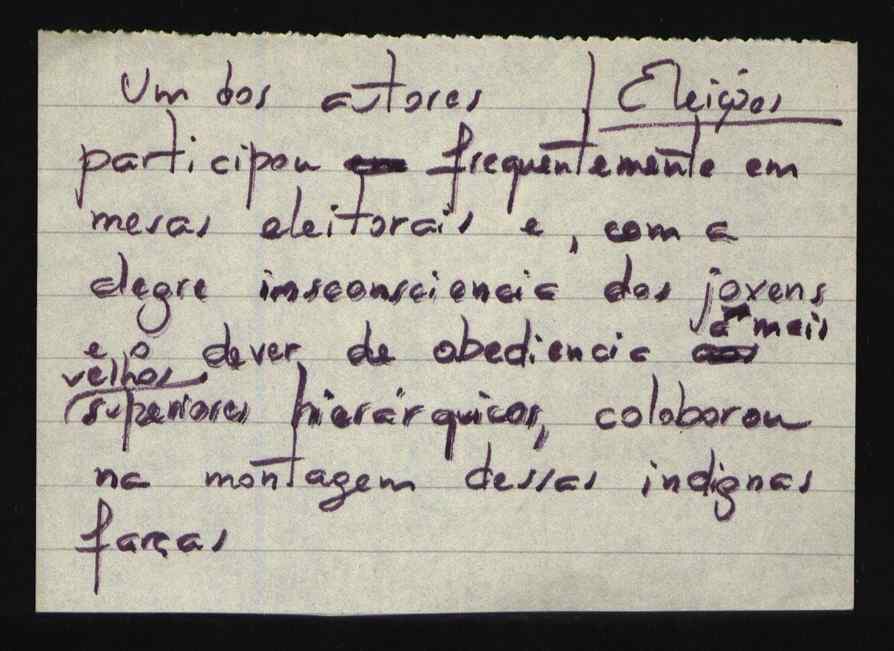 Um dos autores Eleições
participou frequentemente em
mesas eleitorais e, com a
alegre insconsciencia dos jovens
a mais
e o dever de obediencia
velhos
superiores hierárquicos, colaborou
na montagem dessas indignas
farças